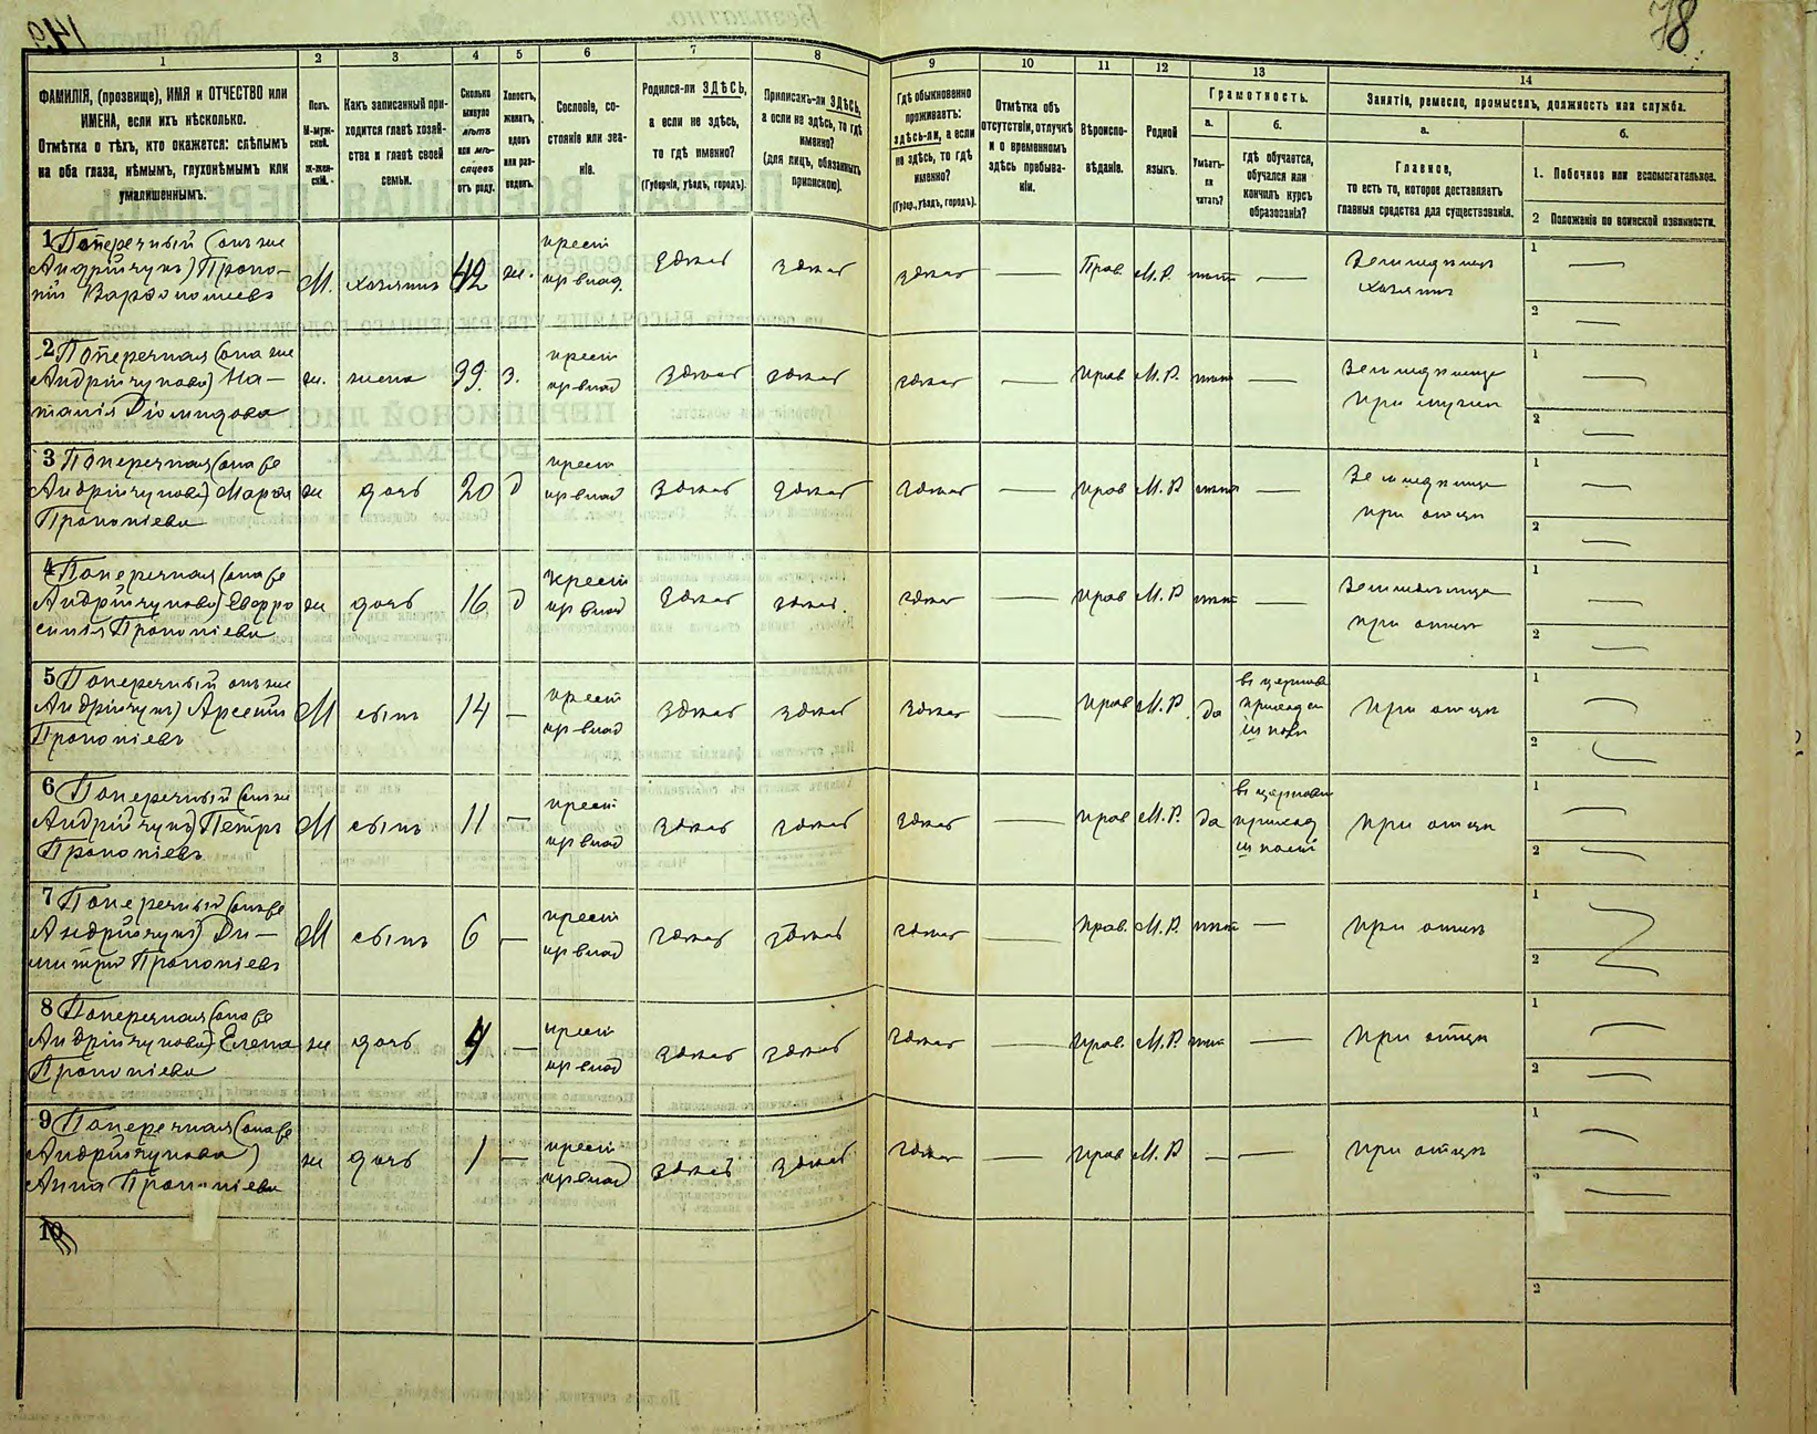 78
149
1
2
3
4
5
6
7
8
9
10
11
12
13
14
ФАМИЛІЯ, (прозвище), ИМЯ и ОТЧЕСТВО или
ИМЕНА, если ихъ нѣсколько.
Отмѣтка о тѣхъ, кто окажется: слѣпымъ
на оба глаза, нѣмымъ, глухонѣмымъ или
умалишеннымъ.
Полъ.
М-муж-
ской.
Ж-жен-
скій.
Какъ записанный при-
ходится главѣ хозяй-
ства и главѣ своей
семьи.
Сколько
минуло
лѣтъ
или мѣ-
сяцевъ
отъ роду.
Холостъ,
женатъ,
вдовъ
или раз-
веденъ.
Сословіе, со-
стояніе или зва-
ніе.
Родился-ли ЗДѢСЬ,
а если не здѣсь,
то гдѣ именно?
(Губернія, уѣздъ, городъ).
Приписанъ-ли ЗДѢСЬ,
а если не здѣсь, то гдѣ
именно?
(Для лицъ, обязанныхъ
припискою).
Гдѣ обыкновенно
проживаетъ:
здѣсь-ли, а если
не здѣсь, то гдѣ
именно?
(Губер., уѣздъ, городъ).
Отмѣтка объ
отсутствіи, отлучкѣ
и о временномъ
здѣсь пребыва-
ніи.
Вѣроиспо-
вѣданіе.
Родной
языкъ.
Грамотность.
а.
Умѣетъ-
ли
читать?
б.
гдѣ обучается,
обучался или
кончилъ курсъ
образованія?
Занятіе, ремесло, промыселъ, должность или служба.
а.
Главное,
то есть то, которое доставляетъ
главныя средства для существованія.
б.
1. Побочное или вспомогательное.
2 Положеніе по воинской повинности.
1 Поперечный (онъ же
Андрійчукъ) Проко-
пій Варфоломеевъ
М. хозяинъ 42 ж. крест здѣсь здѣсь здѣсь — Прав. М.Р. нѣтъ — Земледѣлецъ
хозяинъ
1 —
2 —
2 Поперечная (она же
Андрійчукова) На-
талія Діомидова
ж. жена 39. з. крест здѣсь здѣсь здѣсь — прав М.Р. нѣтъ —
при мужѣ
1 —
2 —
3 Поперечная (она же
Андрійчукова) Марія
Прокопіева
ж дочь 20 д крест здѣсь здѣсь здѣсь — прав М.Р нѣтъ —
при отцѣ
1 —
2 —
4 Поперечная (она же
Андрійчукова) Евфро
синія Прокопіева
ж дочь 16 д крест здѣсь здѣсь здѣсь — прав М.Р нѣтъ —
при отцѣ
1 —
2 —
5 Поперечный онъ же
Андрійчукъ) Арсеній
Прокопіевъ
М сынъ 14 — крест здѣсь здѣсь здѣсь — прав М.Р. да въ церков
приход
при отцѣ
1 —
2 —
6 Поперечный (онъ же
Андрійчукъ) Петръ
Прокопіевъ
М сынъ 11 — крест здѣсь здѣсь здѣсь — прав М.Р. да въ церковн
приход
при отцѣ
1 —
2 —
7 Поперечный (онъ же
Андрійчукъ) Ди-
митрій Прокопіевъ
М сынъ 6 — крест здѣсь здѣсь здѣсь — прав. М.Р. нѣтъ — при отцѣ
1
2
8 Поперечная (она же
Андрійчукова) Елена
Прокопіева
ж дочь 4 — крест здѣсь здѣсь здѣсь — прав. М.Р нѣтъ — при отцѣ
1 —
2 —
9 Поперечная (она же
Андрійчукова)
Анна Прокопіева
ж дочь 1 — крест здѣсь здѣсь здѣсь — прав М.Р — — при отцѣ
1 —
—
10
2